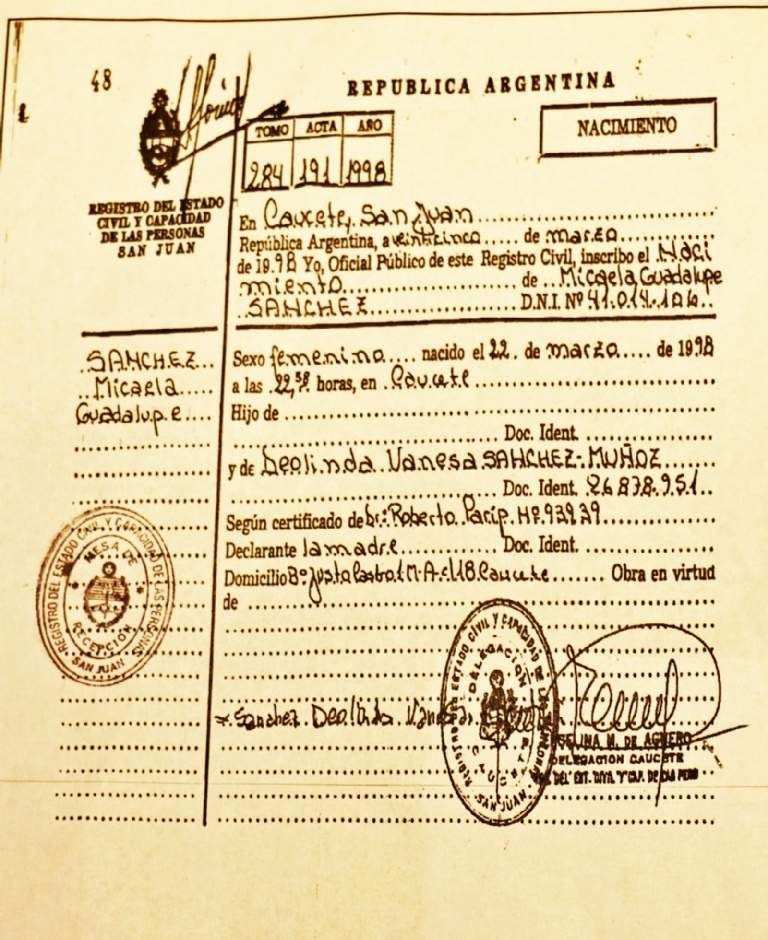 48
REPUBLICA ARGENTINA
TOMO ACTA AÑO
284 191 1998
NACIMIENTO
REGISTRO DEL ESTADO
CIVIL Y CAPACIDAD
DE LAS PERSONAS
SAN JUAN
En Caucete, San Juan
República Argentina, a veinticinco de marzo
de 1998 Yo, Oficial Público de este Registro Civil, inscribo el Naci
miento de Micaela Guadalupe
SANCHEZ D.N.I. Nº 41.014.106
SANCHEZ
Micaela
Guadalupe
Sexo femenino nacido el 22 de marzo de 1998
a las 22, horas, en Caucete
Hijo de
Doc. Ident.
y de Deolinda Vanesa SANCHEZ-MUÑOZ
Doc. Ident. 26.878.951
Según certificado de Dr: Roberto MP. 93939
Declarante la madre Doc. Ident.
Domicilio Bº Justo Castro 1 M-A-c-118 Caucete Obra en virtud
de
REGISTRO DEL ESTADO CIVIL Y CAPACIDAD DE LAS PERSONAS
MESA DE
RECEPCIÓN
SAN JUAN
REGISTRO DEL ESTADO CIVIL Y CAPACIDAD DE LAS PERSONAS
DELEGACION
SAN JUAN
Sanchez Deolinda Vanesa
M. DE AGÜERO
DELEGACION CAUCETE
DEL EST. CIVIL Y CAP. DE LAS PERS